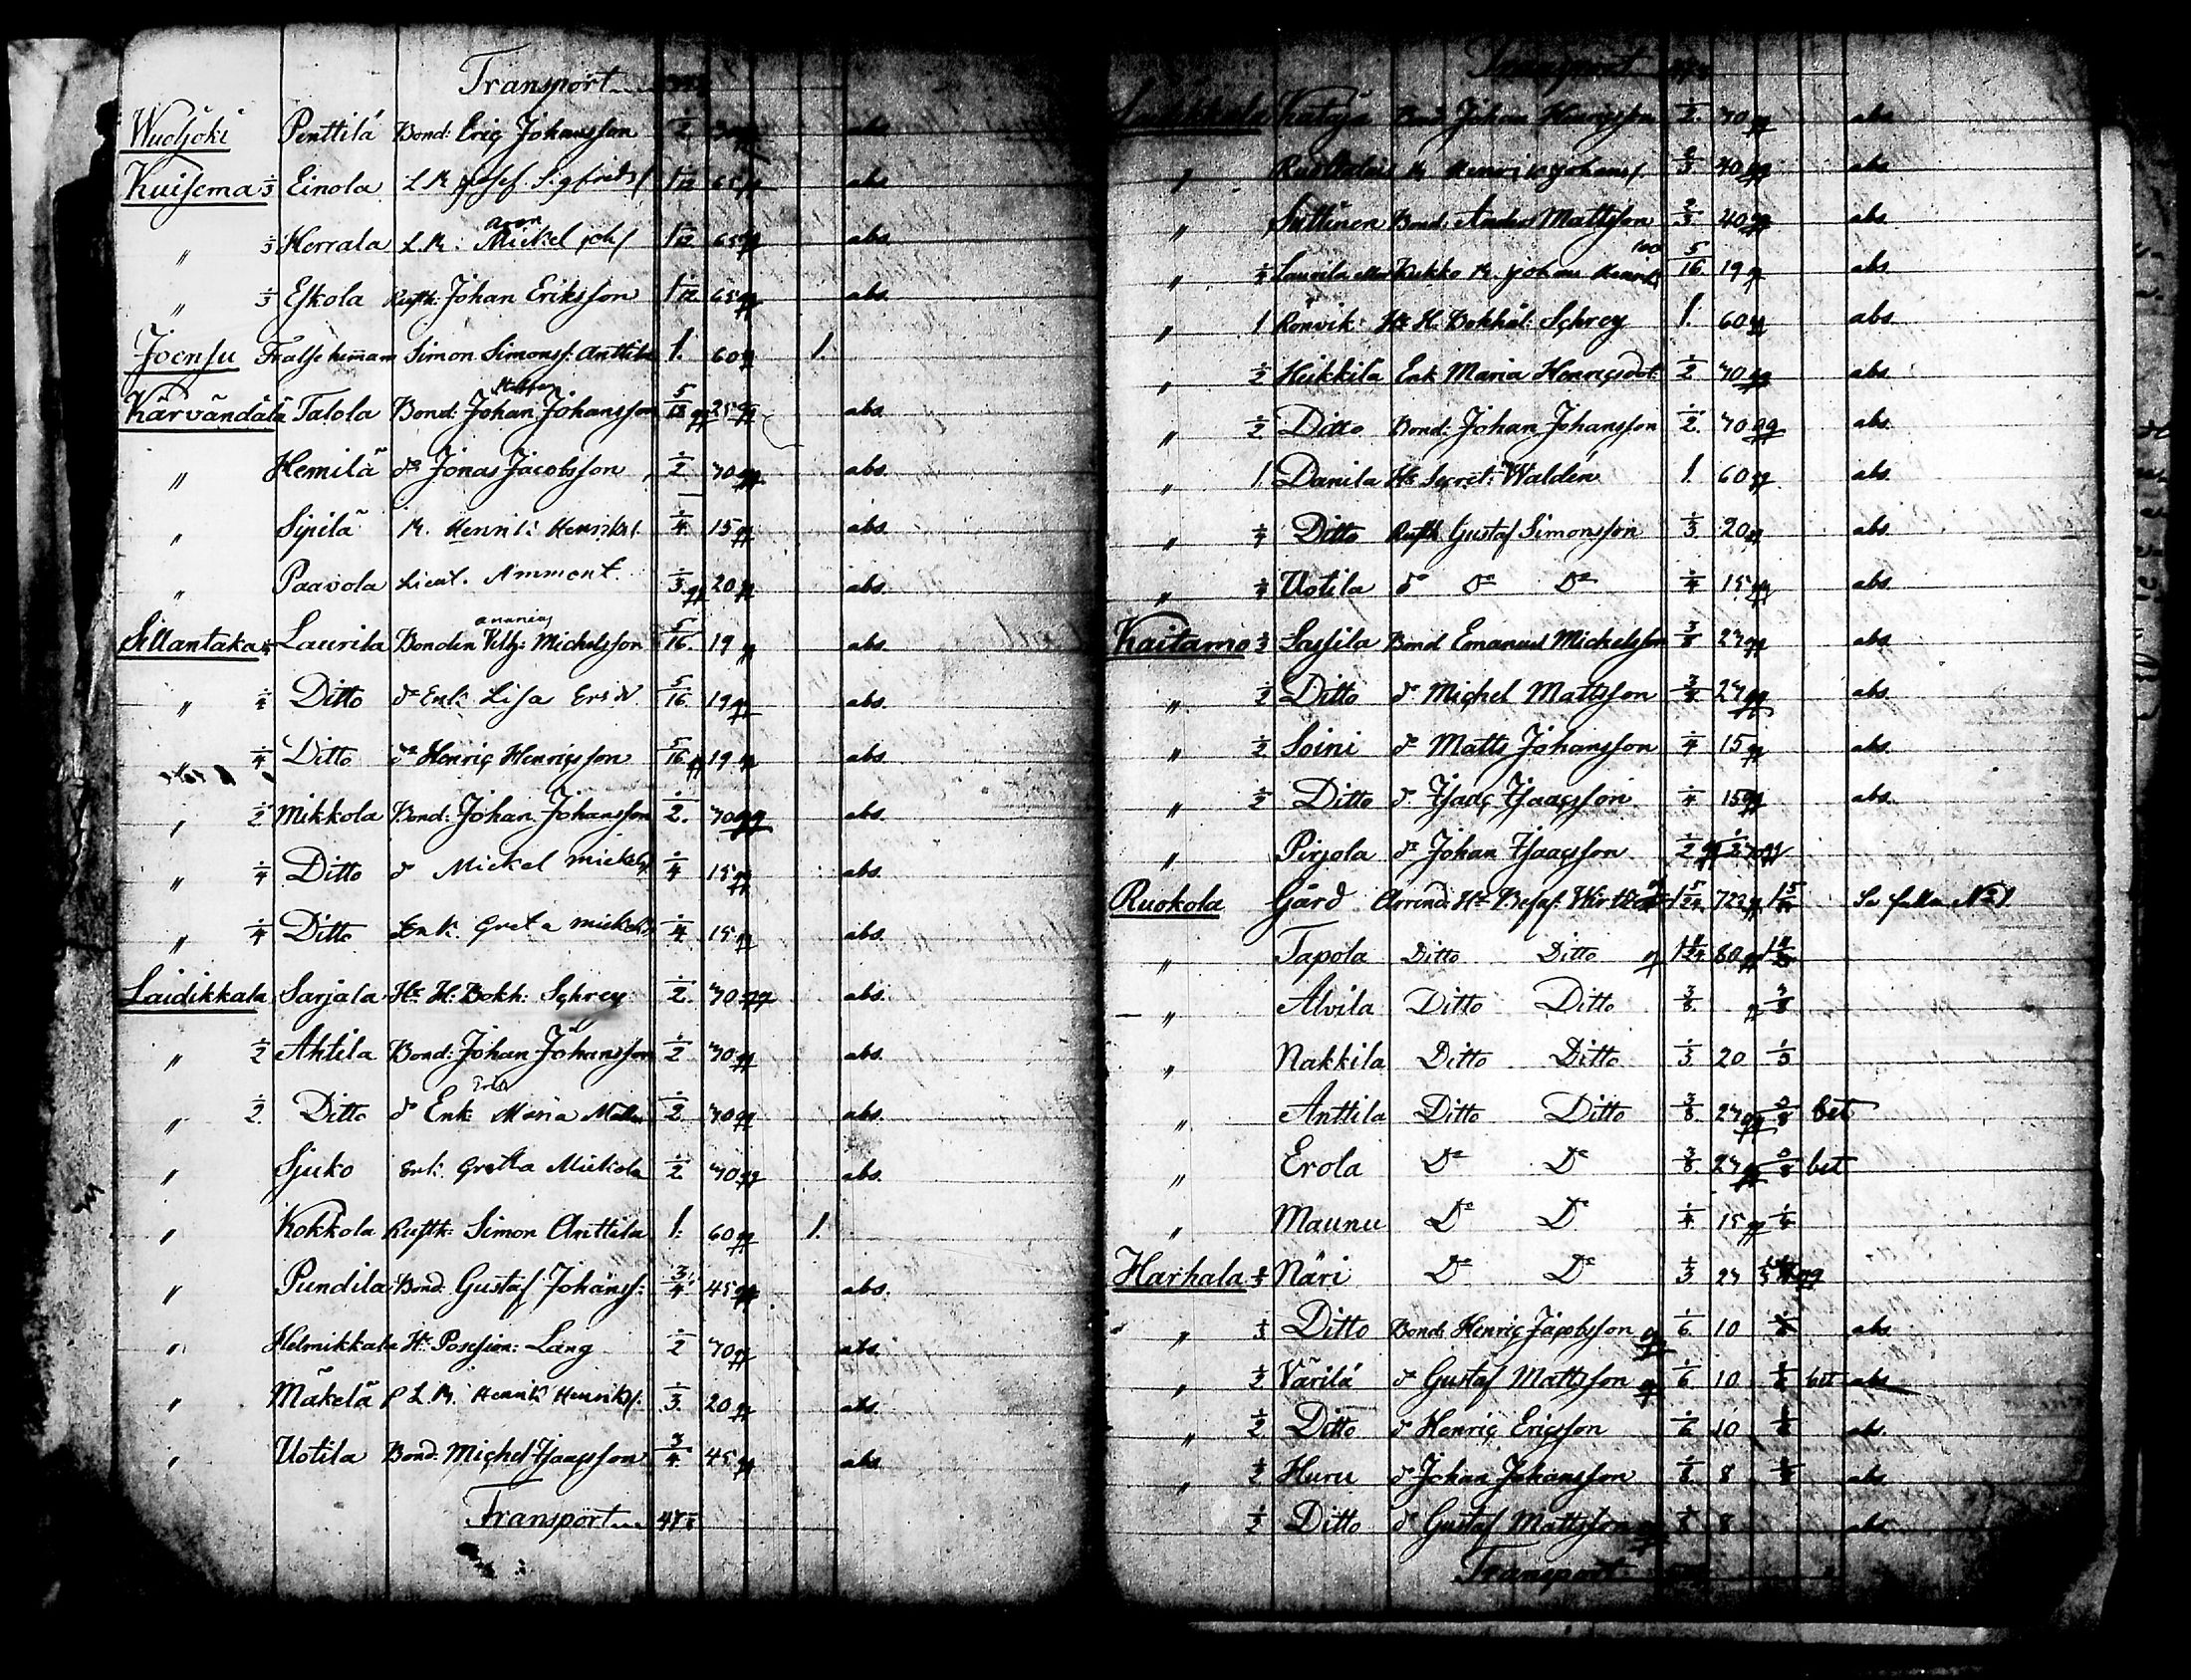 Transport
Wuoljoki Penttilä Bond: Eriç Johansson 1/2 30 abs
Kuisema 1/3 Einola L.R. Josef Sigfrids 1 1/12 65 abs
aron
" 1/3 Herrala L.R. Mickel Joh 1 1/12 65 abs.
" 1/3 Eskola Rusth: Johan Eriksson 1 1/12 65 abs.
Joensu Fralse heman Simon Simonss: Anttila 1. 60 1.
Kärvändälä Talola Bond: Johan Johansson 5/12 25 abs.
" Hemilä do Jonas Jacobsson 1/2 30 abs.
" Sipilä R. Henrik Henrikss. 1/4 15 abs.
" Paavola Lieut. Ammont. 1/3 20 abs.
ananias
Sillantaka 1/4 Laurila Bonden Michelsson 5/16 19 abs.
" 1/4 Ditto do Enk: Lisa Ersd. 5/16 19 abs.
1/4 Ditto do Henriç Henriçsson 5/16 19 abs.
" 1/2 Mikkola Bond: Johan Johansson 1/2. 30 abs.
" 1/4 Ditto do Mickel Mickels 1/4 15 abs.
" 1/4 Ditto Enk. Greta Mickels 1/4 15 abs.
Laidikkala Sarjala Hr H: Bokh: Sçhrey 1/2. 30 abs.
" 1/2 Ahtila Bond: Johan Johansson 1/2 30 abs.
" 1/2. Ditto do Enk Maria Matts 1/2 30 abs.
" Sjuko Enk: Gretha Mickels 1/2 30 abs.
" Kokkola Rusth: Simon Anttila 1. 60 1.
" Pundila Bond: Gustaf Johanss: 3/4 45 abs.
" Helmikkala Hr Posesion: Lang 1/2 30 abs.
" Mäkelä L.R. Henrik Henrikss. 1/3. 20 abs.
" Uotila Bond. Miçhel Isaaçsson 3/4 45 abs
Transport
Transport
Laidikkala Kataja Bond Johan Henriçsson 1/2. 30 abs.
" R. Henric Johanss. 2/3 40 abs
" Suttinen Bond: Anders Mattsson 2/3 40 abs
" 1/4 Laurila eller Kukko R. Johan Henriks 5/16. 19 abs
" 1 Rönvik: Hr H. Bokhål: Sçhrey 1. 60 abs.
" 1/2 Heikkila Enk Maria Henriçsdot: 1/2 30 abs.
" 1/2 Ditto Bond: Johan Johansson 1/2. 30 abs.
" 1. Danila Hr Seçret: Walden 1. 60 abs.
" 1/4 Ditto Rusth Gustaf Simonsson 1/3 20 abs
" 1/4 Uotila do Do Do 1/4 15 abs.
Kaitamo 1/3 Sassila Bond Emanuel Mickelsson 3/8 23 abs.
" 1/2 Ditto do Miçhel Mattsson 3/8. 23 abs.
" 1/2 Soini do Matts Johansson 1/4 15 abs.
" 1/2 Ditto do Isaaç Isaaçsson 1/4 15 abs.
" Pirjola do Johan Isaaçsson 1/2
Ruokola Gård Arrend: Hr Befaf: 1 5/24. 72 No 1
" Tapola Ditto Ditto 80
" Alvila Ditto Ditto 3/8. 3/8
" Nakkila Ditto Ditto 1/3 20 1/3
" Anttila Ditto Ditto 3/8 23 3/8 bet
" Erola Do Do 3/8. 23 3/8 bet
" Maunu Do Do 1/4 15 1/4
Harhala Näri Do Do 1/3 23
" 1/3 Ditto Bond: Henriç Jacobsson 1/6. 10 abs
" 1/2 Värilä do Gustaf Mattsson 1/6. 10 bet abs
" 1/2 Ditto do Henriç Ericsson 1/6 10 abs.
" 1/2 Huru do Johan Johansson 1/8. 8 abs
1/2 Ditto do Gustaf Mattsson 1/8 8 abs
Transport